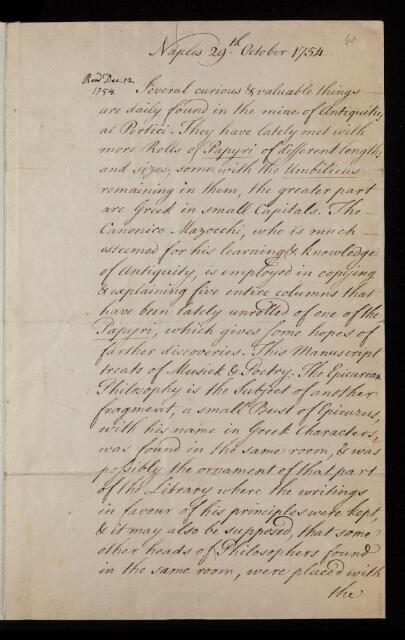 Naples 29.th October 1754.
Read Dec. 12.
1754.
Several curious & valuable things
are daily found in the mine of Antiquities
at Portici. They have lately met with
more Rolls of Papyri of different lengths
and sizes, some with the Umbilicus
remaining in them, the greater part
are Greek in small Capitals. The
Canonico Mazocchi, who is much
esteemed for his learning & knowledge
of Antiquity, is employed in copying
& explaining five entire columns that
have been lately unrolled of one of the
Papyri, which gives some hopes of
farther discoveries. This Manuscript
treats of Musick & Poetry. The Epicurean
Philosophy is the Subject of another
fragment, a small Bust of Epicurus,
with his name in Greek Characters,
was found in the same room, & was
possibly the ornament of that part
of the Library where the writings
in favour of his principles were kept,
& it may also be supposed, that some
other heads of Philosophers found
in the same room, were placed with
the